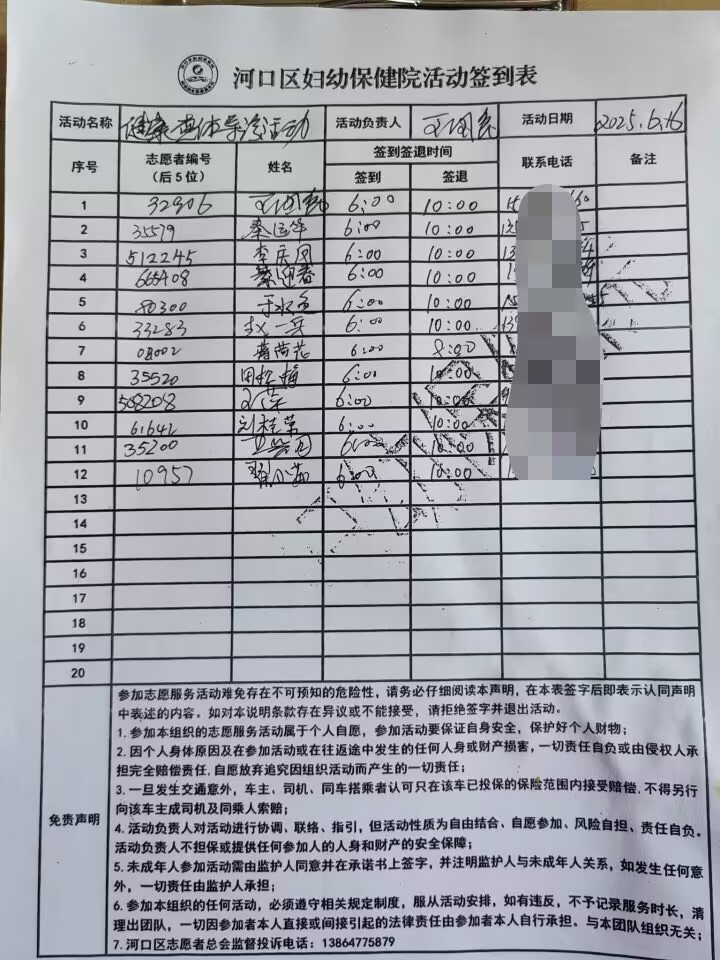 河口区妇幼保健院活动签到表
活动名称 健康 体 活动 活动负责人 活动日期 2025.6.16
序号 志愿者编号（后5位） 姓名 签到签退时间 联系电话 备注
签到 签退
1 32906 6:00 10:00
2 35579 秦运华 6:00 10:00
3 512245 李庆风 6:00 10:00
4 665408 綦迎春 6:00 10:00
5 80300 于水鱼 6:00 10:00
6 33283 赵一兵 6:00 10:00
7 08002 荷花 6:00 8:00
8 35520 田 梅 6:00 10:00
9 508208 6:00 10:00
10 61642 刘桂荣 6:00 10:00
11 35200 6:00 10:00
12 10957 6:00 10:00
13
14
15
16
17
18
19
20
免责声明
参加志愿服务活动难免存在不可预知的危险性，请务必仔细阅读本声明，在本表签字后即表示认同声明
中表述的内容。如对本说明条款存在异议或不能接受，请拒绝签字并退出活动。
1. 参加本组织的志愿服务活动属于个人自愿，参加活动要保证自身安全，保护好个人财物；
2. 因个人身体原因及在参加活动或在往返途中发生的任何人身或财产损害，一切责任自负或由侵权人承
担完全赔偿责任，自愿放弃追究因组织活动而产生的一切责任；
3. 一旦发生交通意外，车主、司机、同车搭乘者认可只在该车已投保的保险范围内接受赔偿，不得另行
向该车主成司机及同乘人索赔；
4. 活动负责人对活动进行协调、联络、指引，但活动性质为自由结合、自愿参加、风险自担、责任自负。
活动负责人不担保或提供任何参加人的人身和财产的安全保障；
5. 未成年人参加活动需由监护人同意并在承诺书上签字，并注明监护人与未成年人关系，如发生任何意
外，一切责任由监护人承担；
6. 参加本组织的任何活动，必须遵守相关规定制度，服从活动安排，如有违反，不予记录服务时长，清
理出团队，一切因参加者本人直接或间接引起的法律责任由参加者本人自行承担。与本团队组织无关；
7. 河口区志愿者总会监督投诉电话：13864775879